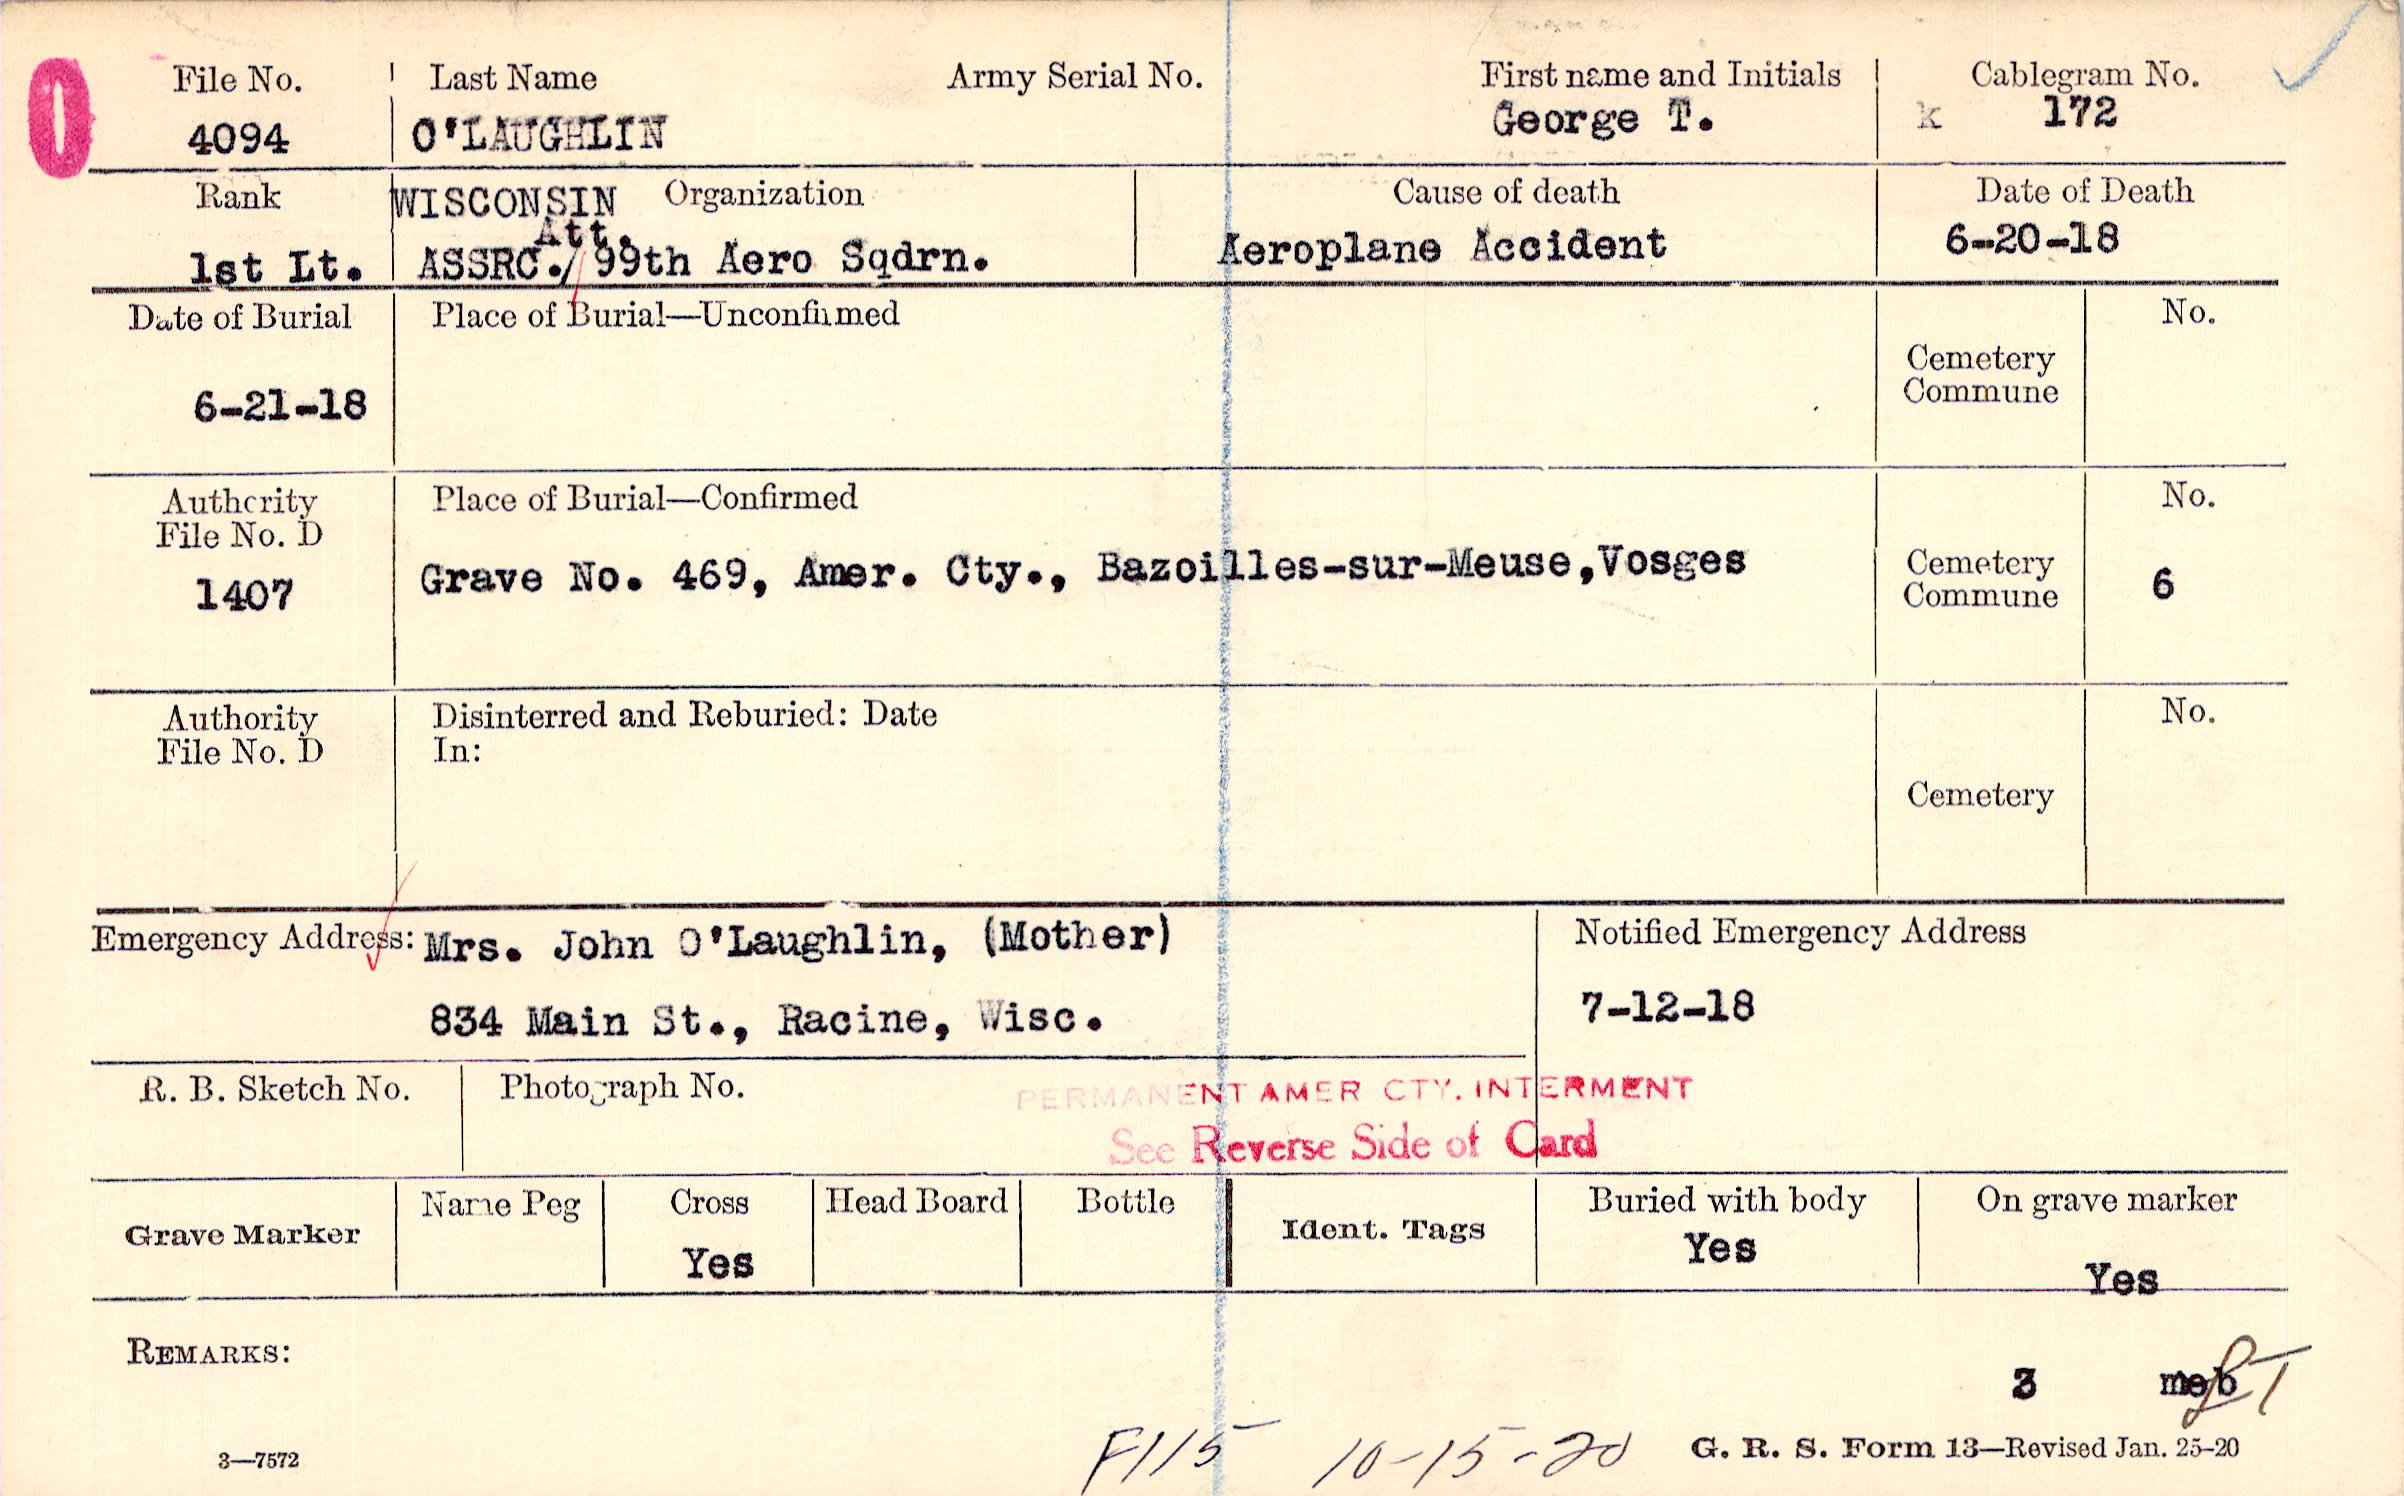 0
File No. Last Name Army Serial No. First name and Initials Cablegram No.
4094 O'LAUGHLIN George T. k 172
Rank WISCONSIN Organization Cause of death Date of Death
Att.
1st Lt. ASSRC./ 99th Aero Sqdrn. Aeroplane Accident 6-20-18
Date of Burial Place of Burial—Unconfirmed No.
Cemetery
Commune
6-21-18
Authority Place of Burial—Confirmed No.
File No. D
1407 Grave No. 469, Amer. Cty., Bazoilles-sur-Meuse,Vosges Cemetery 6
Commune
Authority Disinterred and Reburied: Date No.
File No. D In:
Cemetery
Emergency Address: Mrs. John O'Laughlin, (Mother) Notified Emergency Address
834 Main St., Racine, Wisc. 7-12-18
R. B. Sketch No. Photograph No. PERMANENT AMER CTY. INTERMENT
See Reverse Side of Card
Grave Marker Name Peg Cross Head Board Bottle Ident. Tags Buried with body On grave marker
Yes Yes Yes
REMARKS:
3 meb
F115 10-15-20
3—7572 G. R. S. Form 13—Revised Jan. 25-20